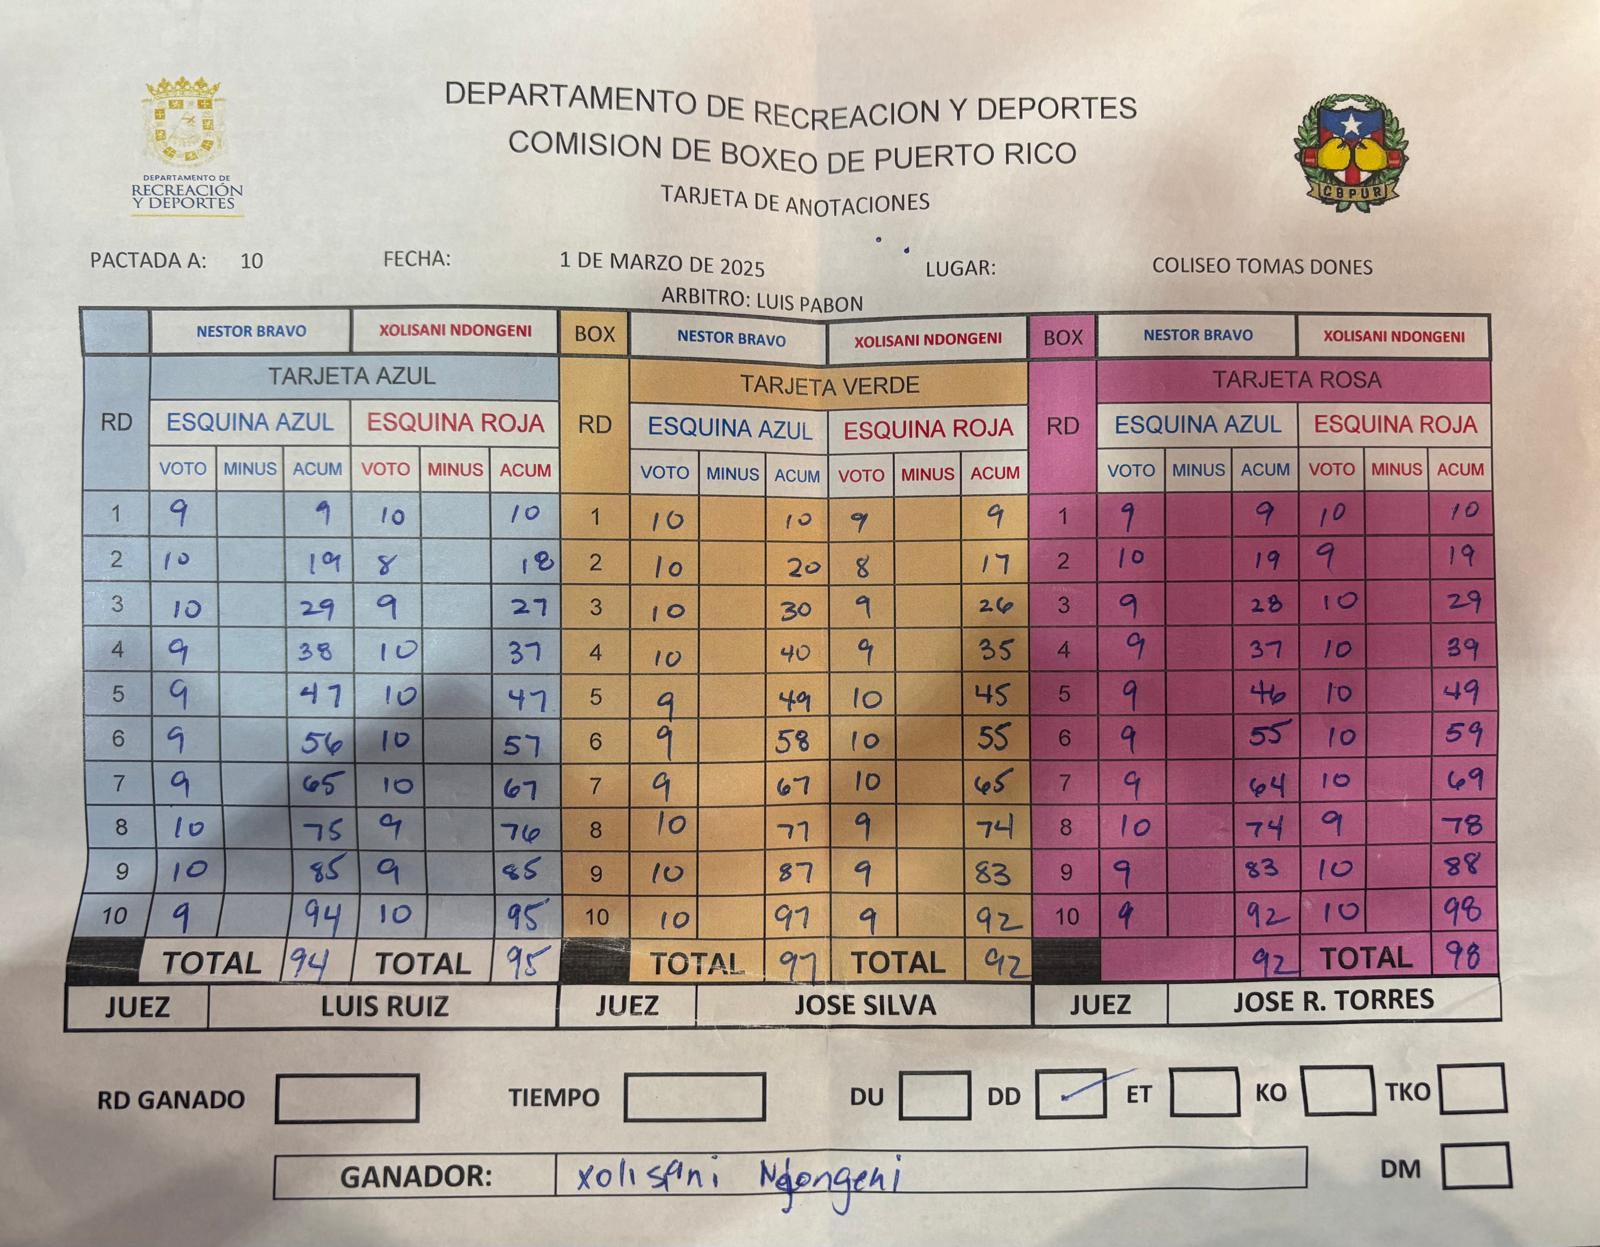 DEPARTAMENTO DE RECREACION Y DEPORTES
COMISION DE BOXEO DE PUERTO RICO
TARJETA DE ANOTACIONES
DEPARTAMENTO DE
RECREACIÓN
Y DEPORTES
CBPUR
PACTADA A: 10 FECHA: 1 DE MARZO DE 2025 LUGAR: COLISEO TOMAS DONES
ARBITRO: LUIS PABON
NESTOR BRAVO XOLISANI NDONGENI BOX NESTOR BRAVO XOLISANI NDONGENI BOX NESTOR BRAVO XOLISANI NDONGENI
TARJETA AZUL TARJETA VERDE TARJETA ROSA
RD ESQUINA AZUL ESQUINA ROJA RD ESQUINA AZUL ESQUINA ROJA RD ESQUINA AZUL ESQUINA ROJA
VOTO MINUS ACUM VOTO MINUS ACUM VOTO MINUS ACUM VOTO MINUS ACUM VOTO MINUS ACUM VOTO MINUS ACUM
1 9 9 10 10 1 10 10 9 9 1 9 9 10 10
2 10 19 8 18 2 10 20 8 17 2 10 19 9 19
3 10 29 9 27 3 10 30 9 26 3 9 28 10 29
4 9 38 10 37 4 10 40 9 35 4 9 37 10 39
5 9 47 10 47 5 9 49 10 45 5 9 46 10 49
6 9 56 10 57 6 9 58 10 55 6 9 55 10 59
7 9 65 10 67 7 9 67 10 65 7 9 64 10 69
8 10 75 9 76 8 10 77 9 74 8 10 74 9 78
9 10 85 9 85 9 10 87 9 83 9 9 83 10 88
10 9 94 10 95 10 10 97 9 92 10 9 92 10 98
TOTAL 94 TOTAL 95 TOTAL 97 TOTAL 92 92 TOTAL 98
JUEZ LUIS RUIZ JUEZ JOSE SILVA JUEZ JOSE R. TORRES
RD GANADO TIEMPO DU DD ET KO TKO
GANADOR: Xolisani Ndongeni DM